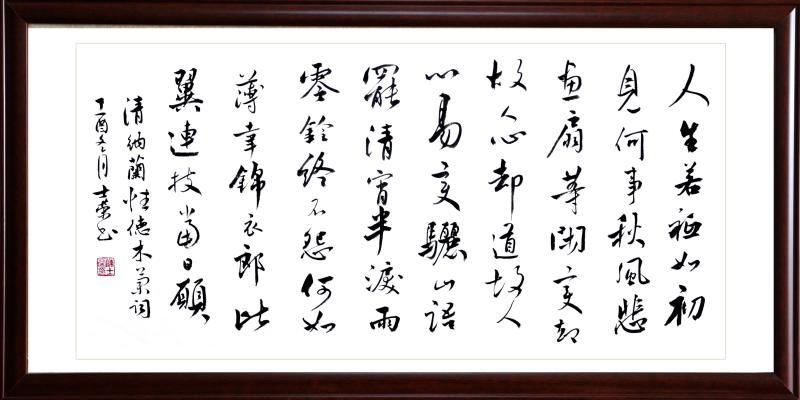 人生若祗如初
見何事秋風悲
画扇等閒变却
故人心却道故人
心易变驪山語
罷清宵半淚雨
零鈴終不怨何如
薄幸錦衣郎比
翼連枝當日願
清納蘭性德木蘭詞
丁酉冬月士荣书